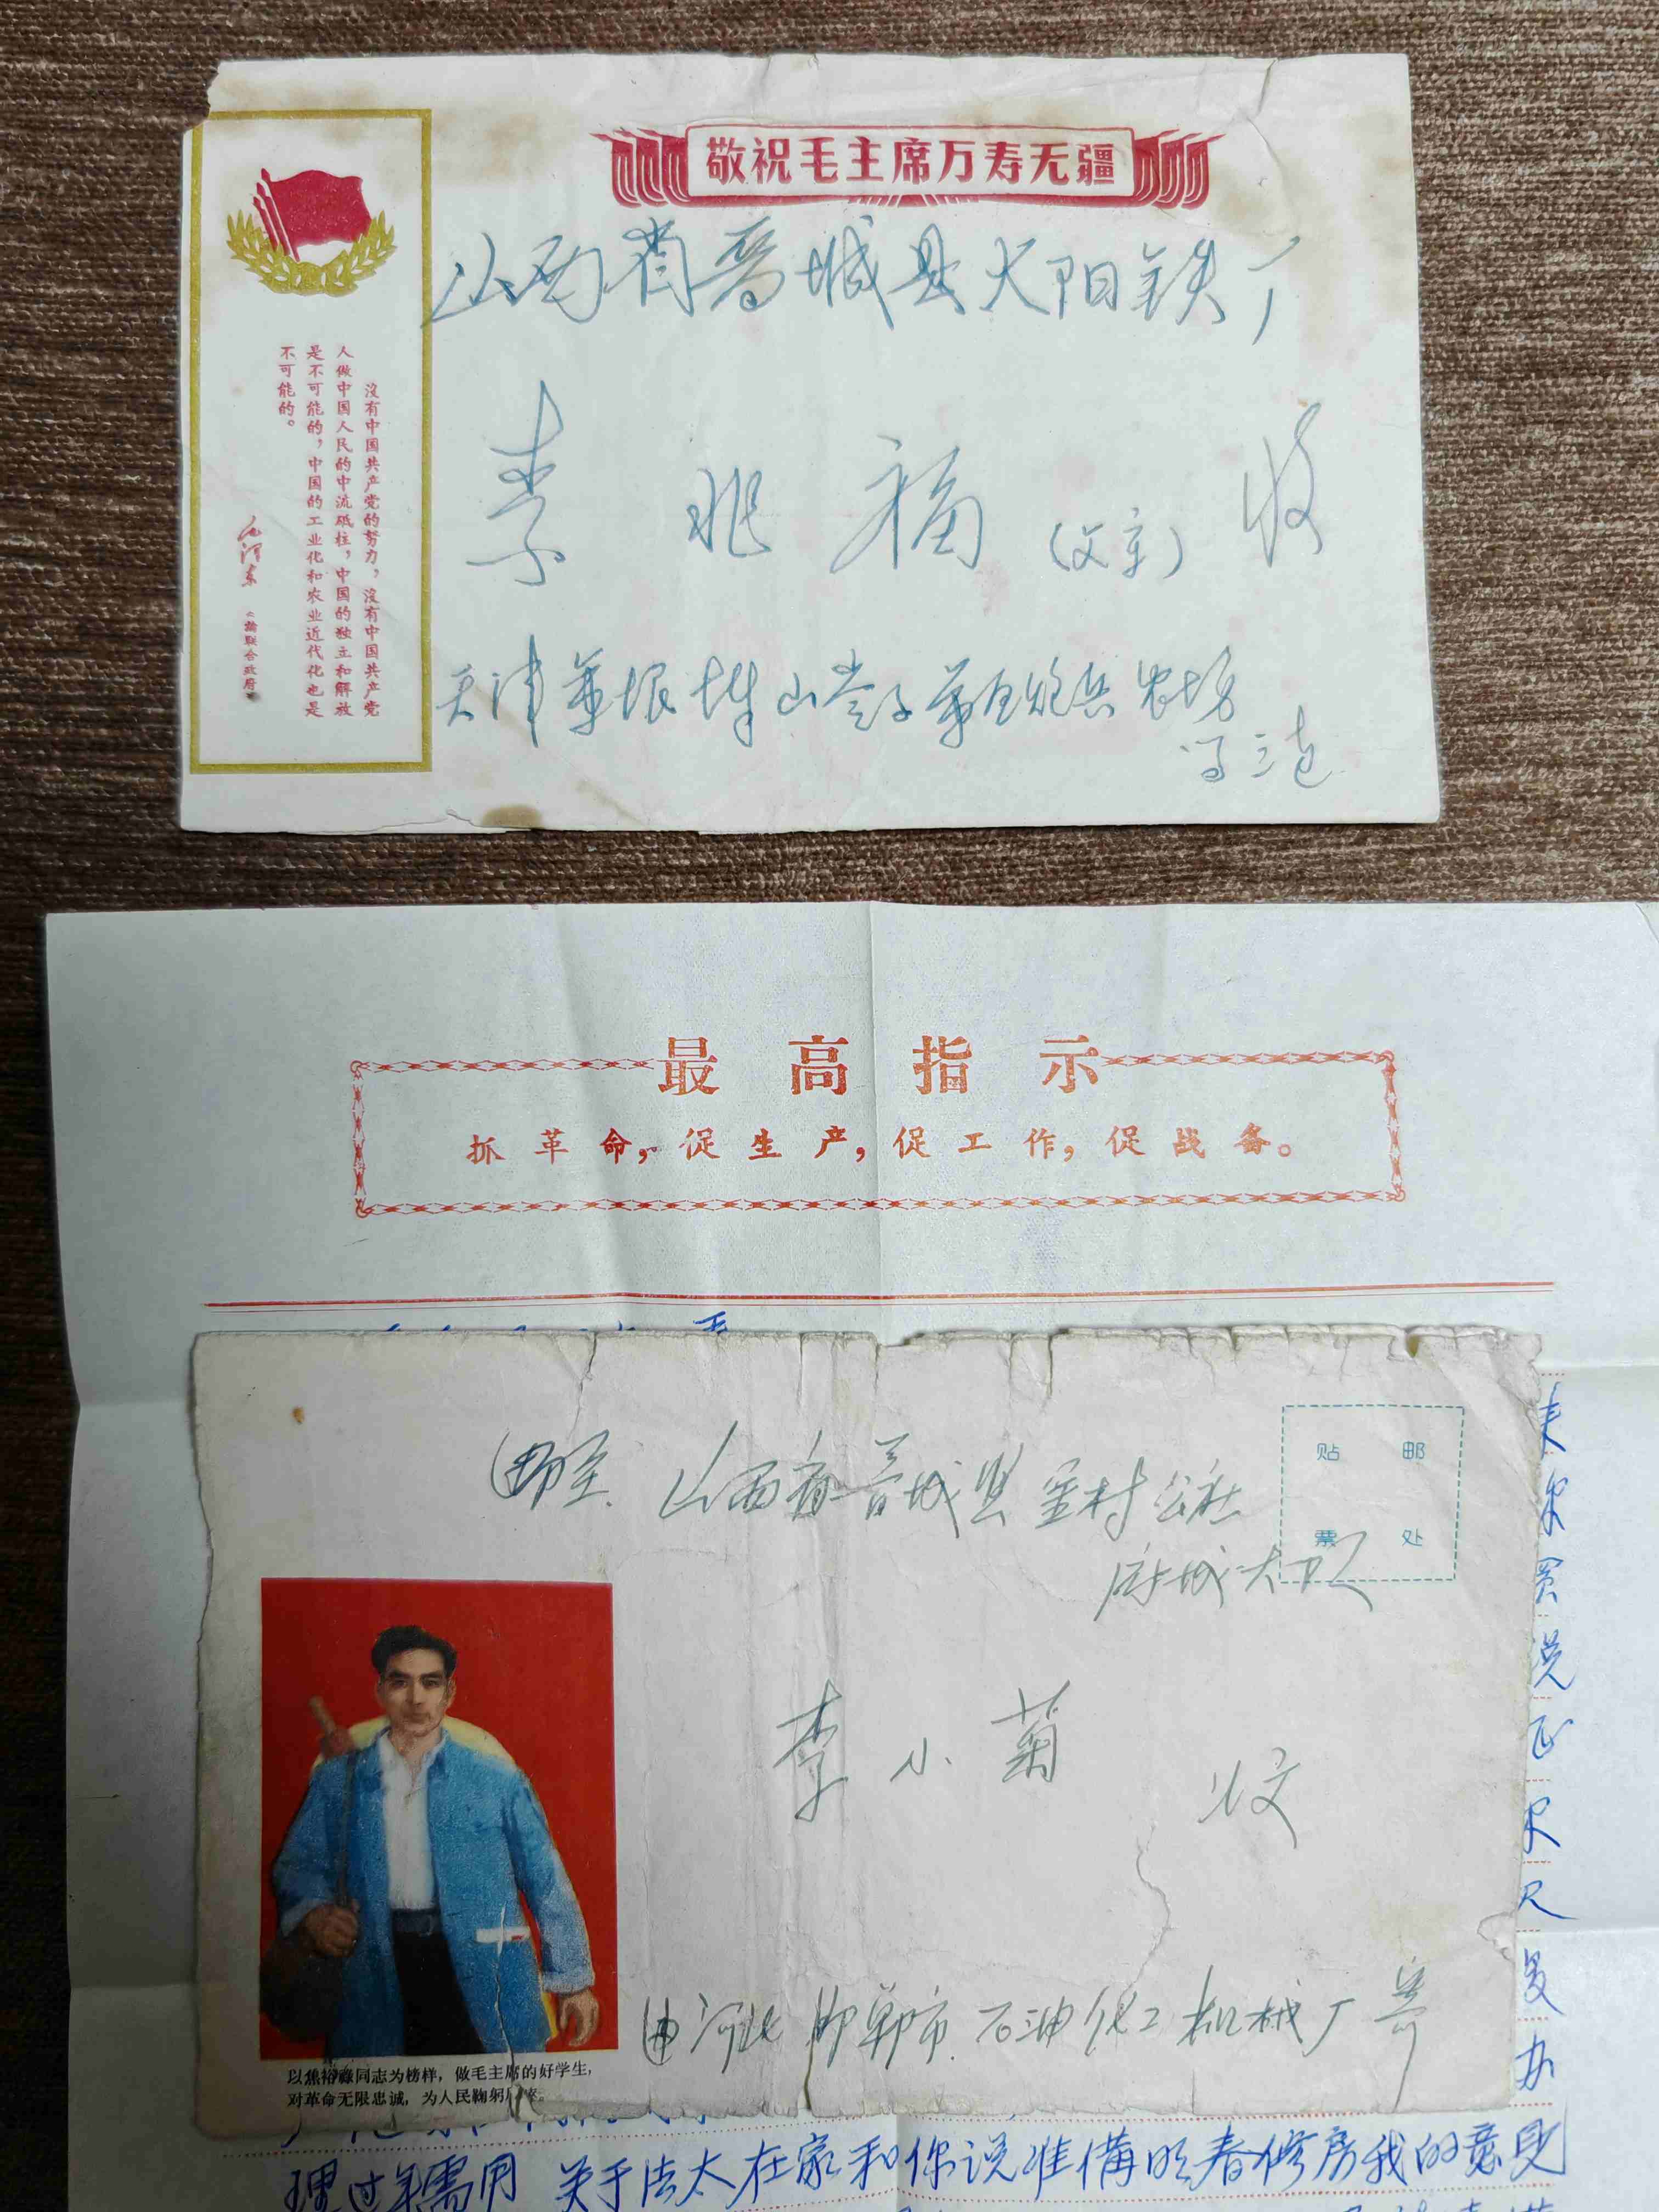 敬祝毛主席万寿无疆
没有中国共产党的努力，没有中国共产党
人做中国人民的中流砥柱，中国的独立和解放
是不可能的，中国的工业化和农业近代化也是
不可能的。
毛泽东
《论联合政府》
山西省晋城县大阳铁厂
李兆福（父亲）收
天津 山岺子 炮兵农场
最高指示
抓革命，促生产，促工作，促战备。
邮至 山西省晋城县金村公社
府城大队
贴邮
票处
李小菊 收
由河北邯郸市石油化工机械厂寄
以焦裕禄同志为榜样，做毛主席的好学生，
对革命无限忠诚，为人民鞠躬尽瘁。
来
家
买
说
正
尺
办
理过年需用 关于法太在家和你说准備明春修房我的意见